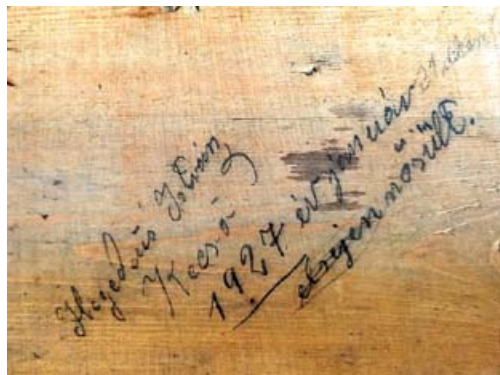 Hegedüs István
Kecső
1927 év január 21.
elsején nősült.